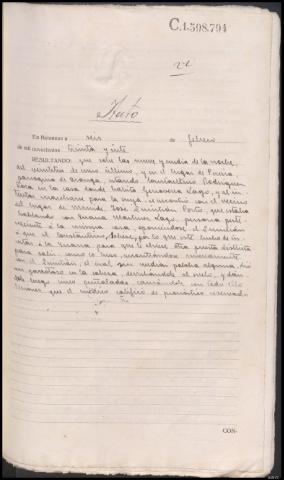 C.1.598.794
Auto
En Betanzos a seis de febrero
de mil novecientos treinta y siete
RESULTANDO: que sobre las nueve y media de la noche
del veintitrés de enero último, y en el lugar de
parroquia de estando Constantino Rodríguez
en la casa donde habita Genoveva Lago, y al in-
tentar marcharse para la suya, se encontró con el vecino
del lugar de José Porto, que estaba
hablando con Juana Martínez Lago, persona perte-
neciente a la misma casa, oponiéndose el
a que el Constantino saliese, por lo que este hubo de ins-
tar a la Juana para que le abriese otra puerta distinta
para salir, como lo hizo, encontrándose nuevamente
con el el cual sin mediar palabra alguna, le dió
un garrotazo en la cabeza, derribándole al suelo, y dán-
dole luego unas puñaladas causándole con todo ello
lesiones que el médico calificó de pronóstico reservado
CON-